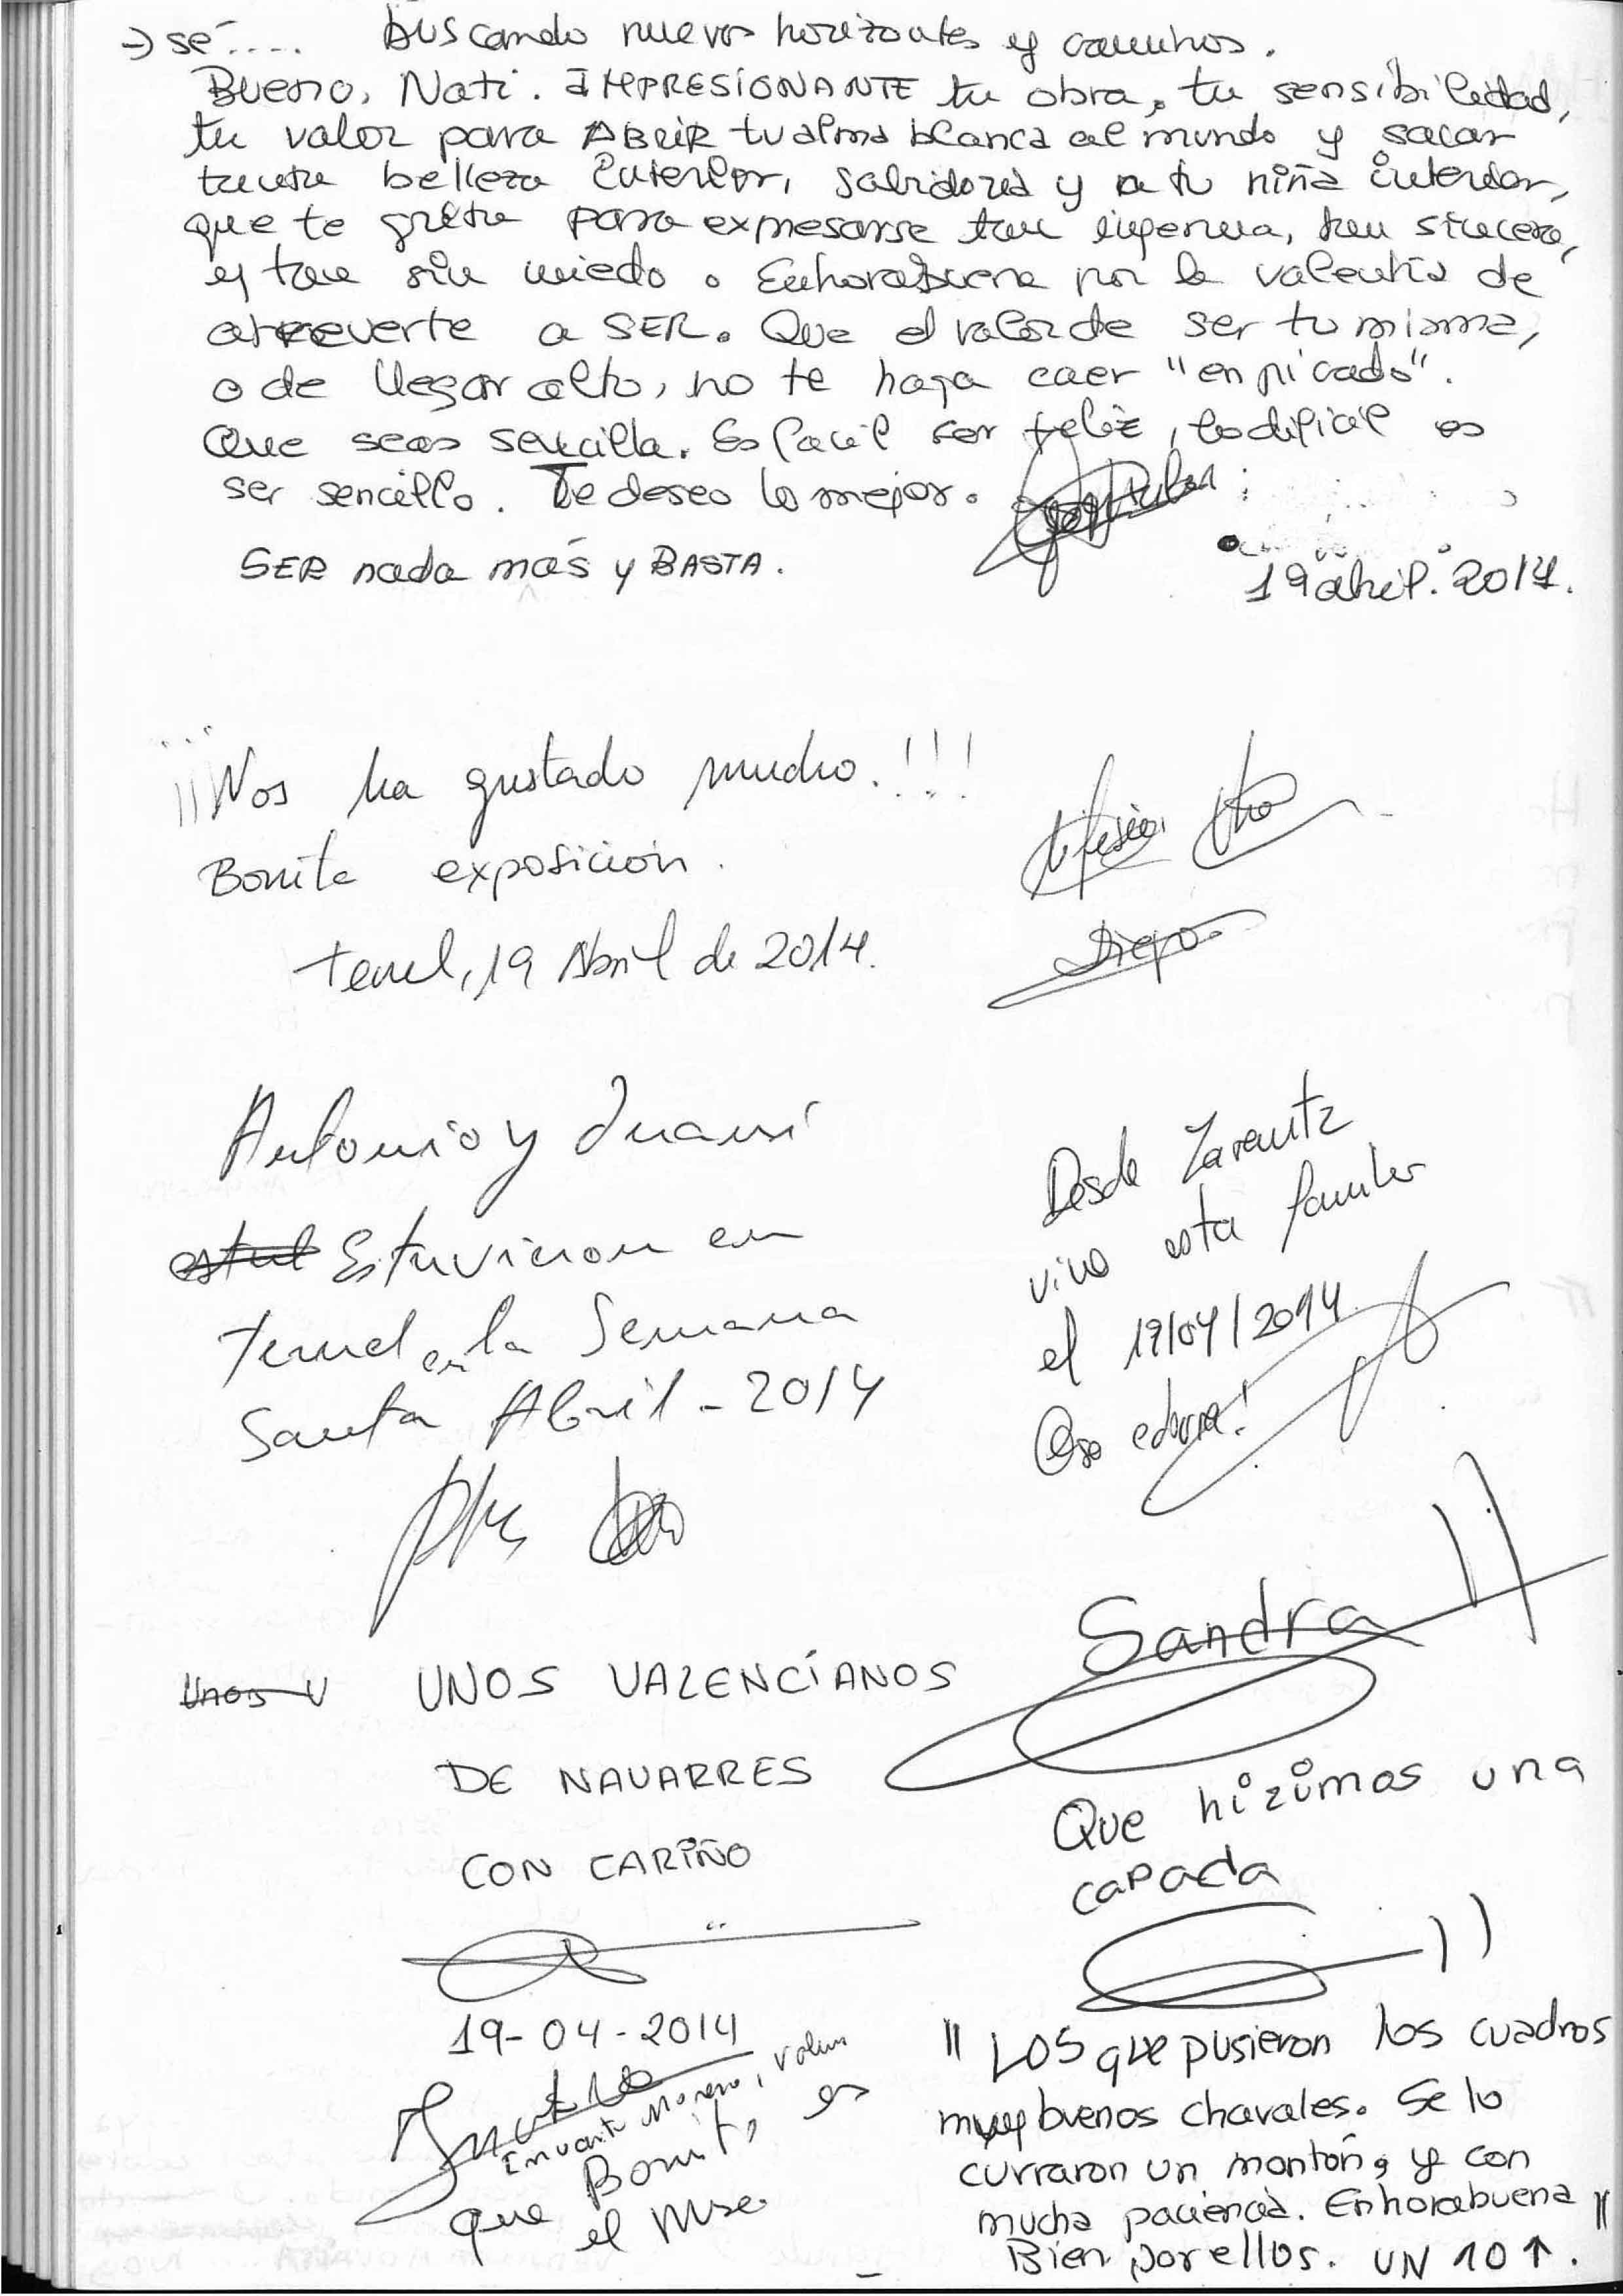 → sé.... buscando nuevos horizontes y caminos.
Bueno, Nati. IMPRESIONANTE tu obra, tu sensibilidad,
tu valor para ABRIR tu alma blanca al mundo y sacar
tanta belleza interior, sabidoria y a tu niña interior,
que te grita para expresarse tan ingenua, tan sincera,
y tan sin miedo. Enhorabuena por la valentía de
atreverte a SER. Que el valor de ser tu misma,
o de llegar alto, no te haga caer "en picado".
Que seas sencilla. Es facil ser feliz, lo dificil es
ser sencillo. Te deseo lo mejor.
SER nada más y BASTA.
19 abril. 2014.
¡¡Nos ha gustado mucho.!!!
Bonita exposición.
Teruel, 19 Abril de 2014.
Diego
Antonio y Juani
Estuvieron en
Teruel en la Semana
Santa Abril - 2014
Desde Zarautz
vino esta familia
el 19/04/2014
Oso ederra!
Unos V UNOS VALENCIANOS
DE NAVARRES
CON CARIÑO
19-04-2014
Sandra
Que hizimos una
capada
Encarnita Moreno,
que Bonito es
el Museo
" LOS que pusieron los cuadros
muy buenos chavales. Se lo
curraron un montón, y con
mucha paciencia. Enhorabuena "
Bien por ellos. UN 10 ↑.